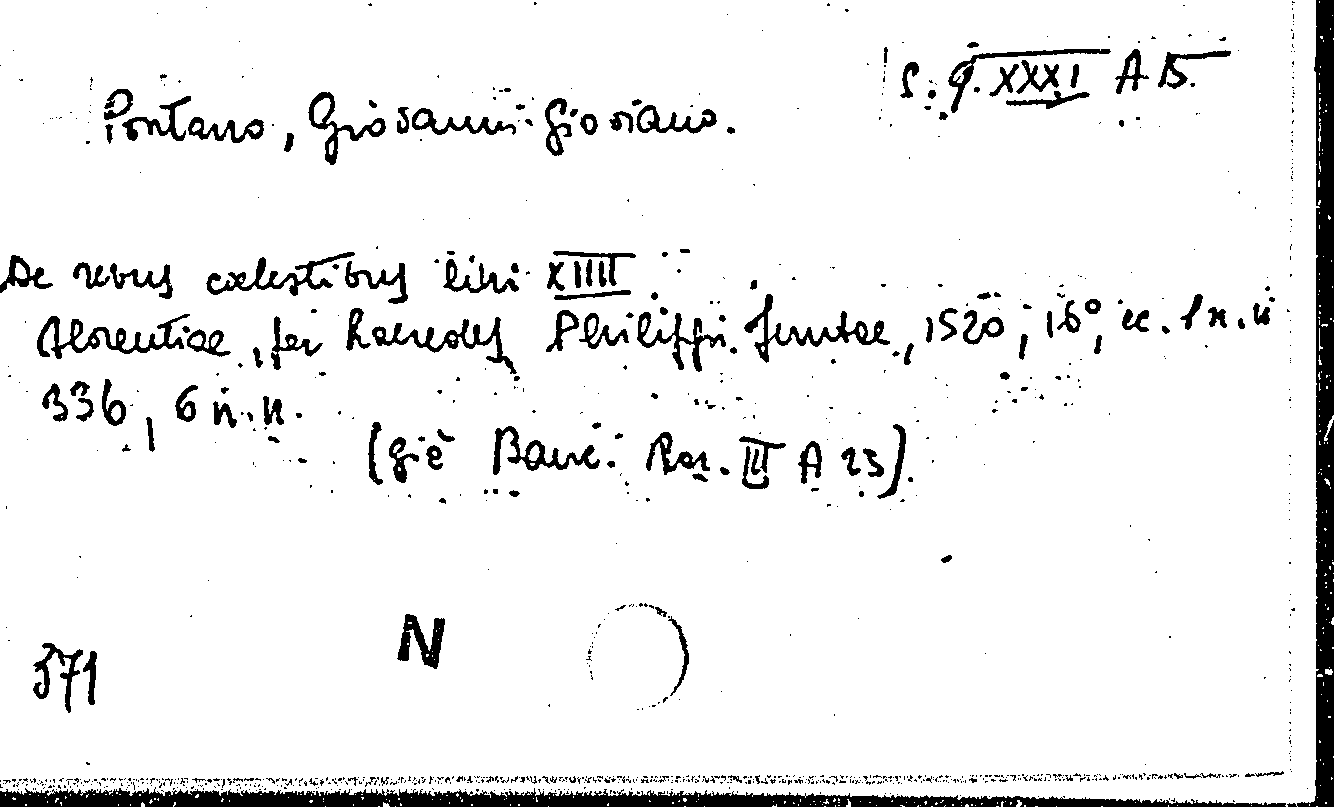 S. Q. XXXI A 15.
Pontano, Giovanni Gioviano.
De rebus coelestibus libri XIIII
Florentiae, per haeredes Philippi Juntae, 1520, 16°, cc. 1 n.n.
336, 6 n.n.
(già Banc. Rar. III A 23).
N
371